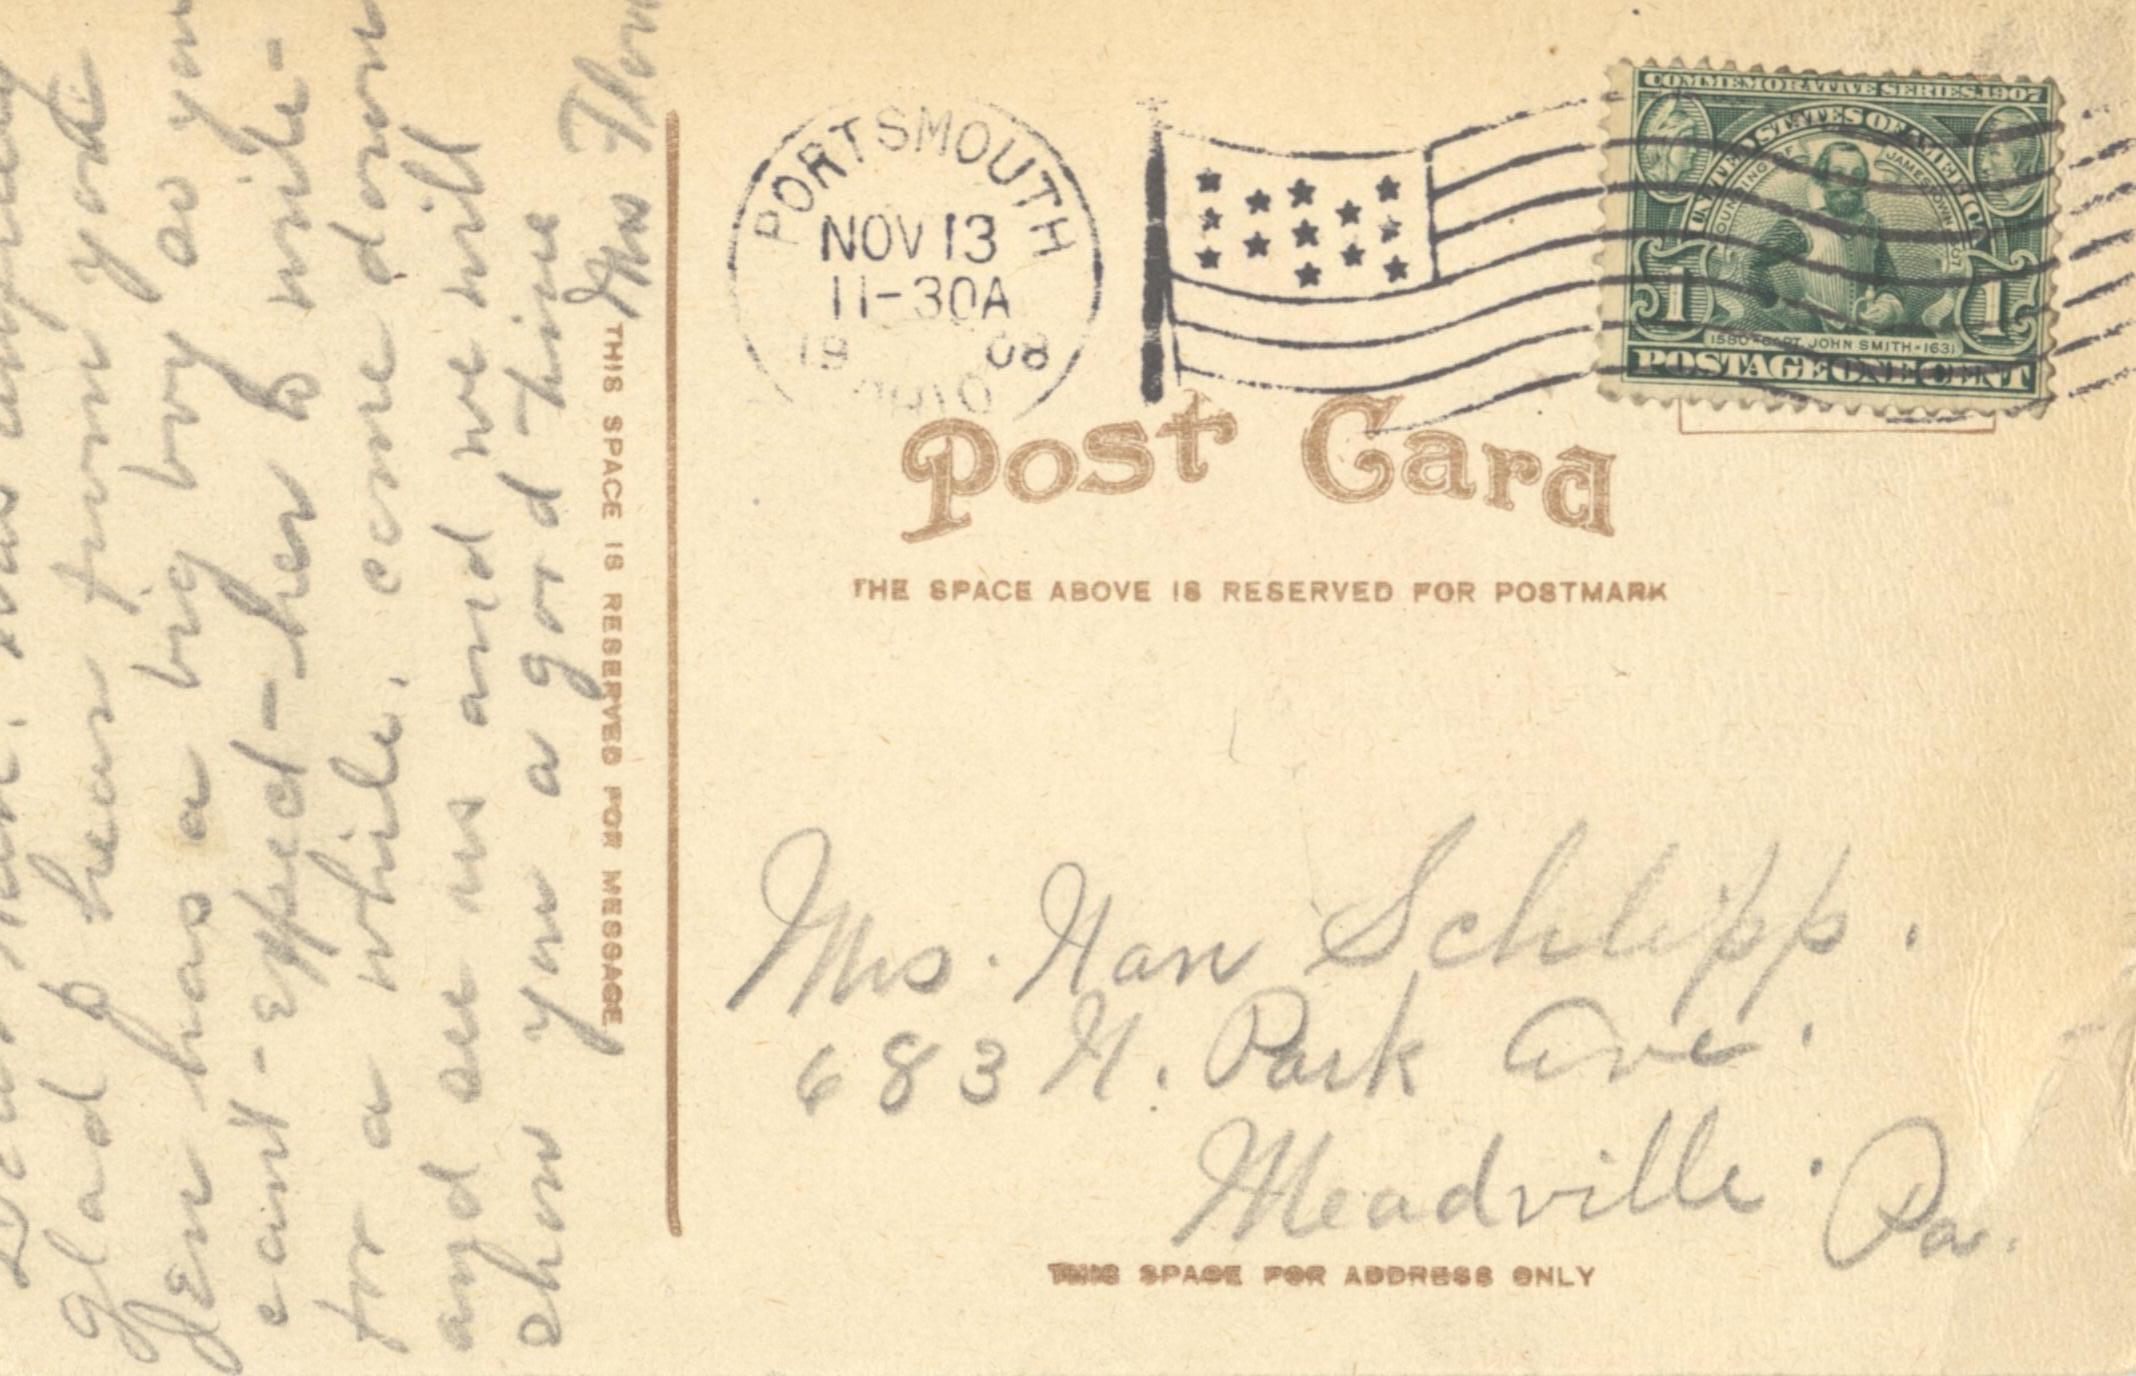 Dear Nan. was
glad to hear from you
Jen has a big boy so you
cant expect her to write
for a while. come down
and see us and we will
show you a good time
Mrs
THIS SPACE IS RESERVED FOR MESSAGE
PORTSMOUTH
NOV 13
11-30A
19 08
OHIO
COMMEMORATIVE SERIES 1907
UNITED STATES OF AMERICA
FOUNDING OF JAMESTOWN 1607
1 1
1580-CAPT. JOHN SMITH-1631
POSTAGE ONE CENT
Post Card
THE SPACE ABOVE IS RESERVED FOR POSTMARK
Mrs. Nan Schlipp.
683 N. Park Ave.
Meadville. Pa.
THIS SPACE FOR ADDRESS ONLY